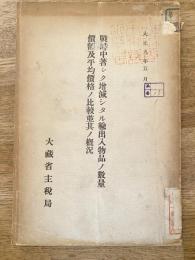 大正八年五月
戰時中著シク增減シタル輸出入物品ノ數量
價額及平均價格ノ比較並其ノ概況
大藏省主稅局